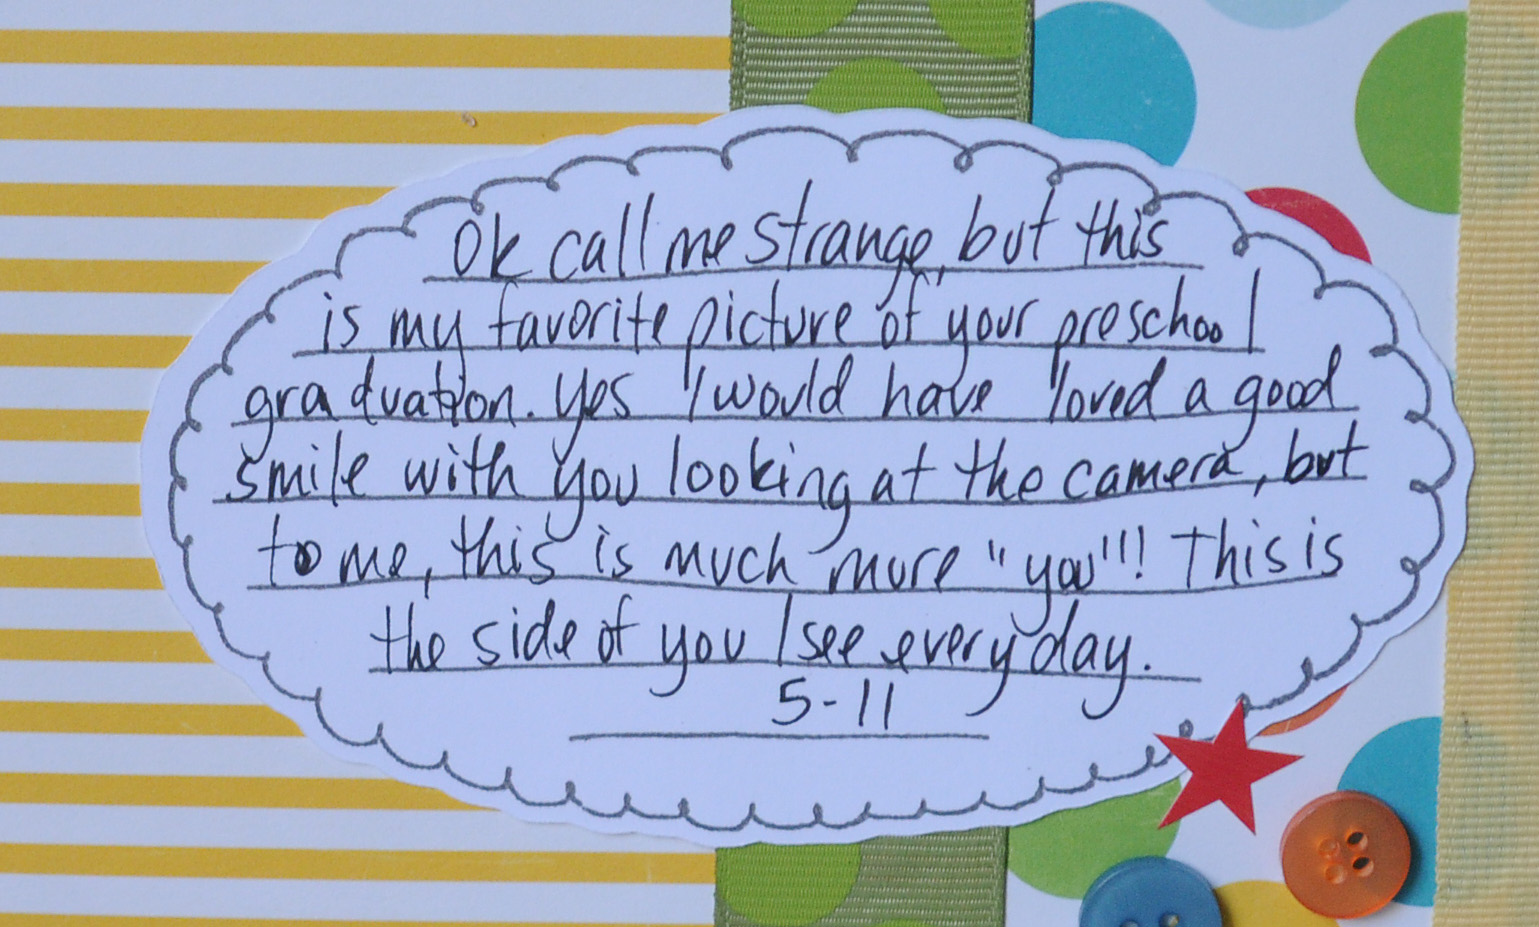 Ok call me strange, but this
is my favorite picture of your preschool
graduation. Yes I would have loved a good
smile with you looking at the camera, but
to me, this is much more "you"!! This is
the side of you I see every day.
5-11